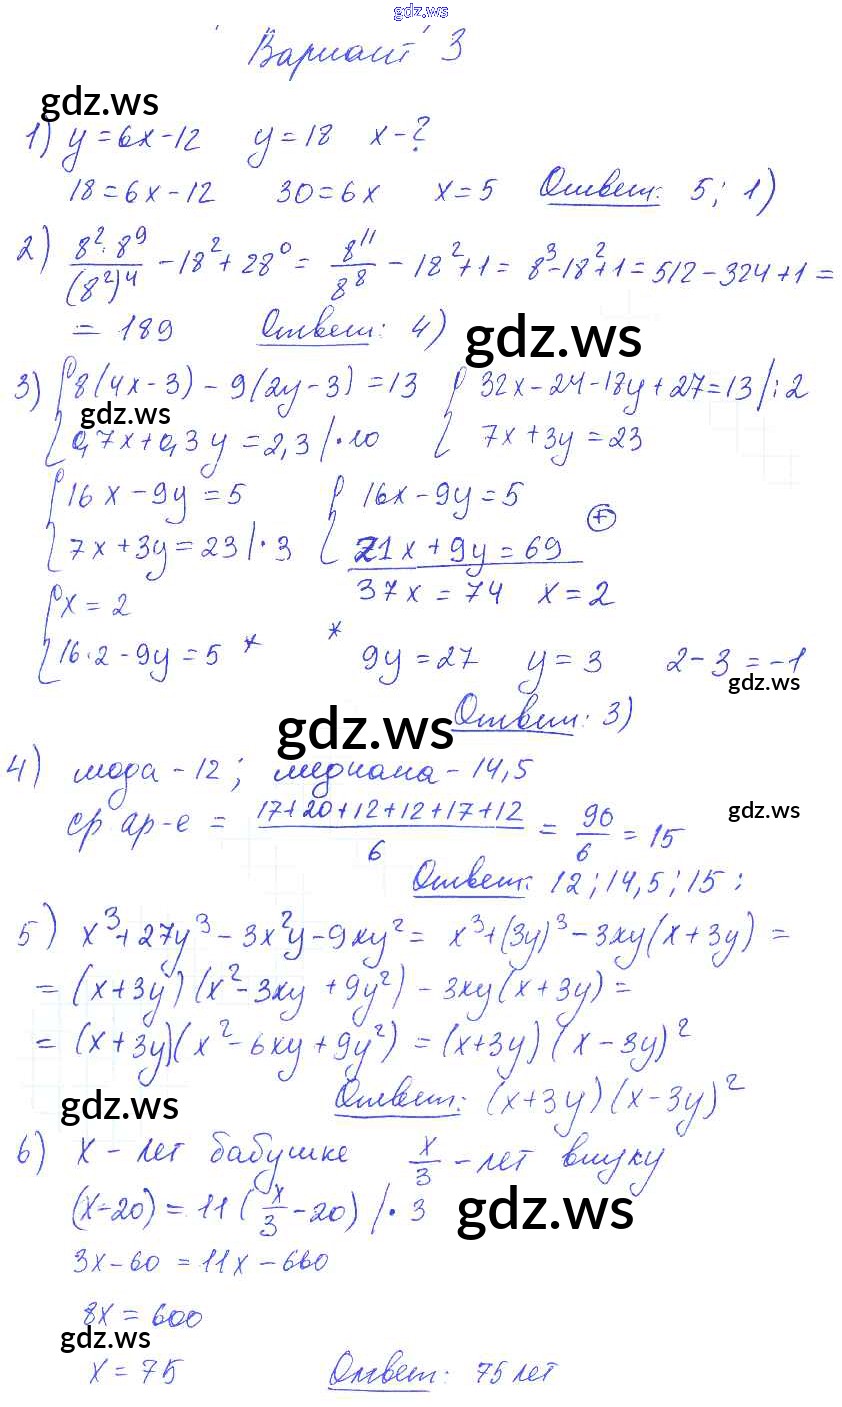 gdz.ws
Вариант 3
gdz.ws
1) y = 6x - 12 y = 18 x - ?
18 = 6x - 12 30 = 6x x = 5 Ответ: 5; 1)
2) (8² · 8⁹)/(8²)⁴ - 18² + 28⁰ = 8¹¹/8⁸ - 18² + 1 = 8³ - 18² + 1 = 512 - 324 + 1 =
= 189 Ответ: 4) gdz.ws
3) { 8(4x - 3) - 9(2y - 3) = 13 { 32x - 24 - 18y + 27 = 13 | : 2
gdz.ws
0,7x + 0,3y = 2,3 | · 10 7x + 3y = 23
{ 16x - 9y = 5 { 16x - 9y = 5
7x + 3y = 23 | · 3 21x + 9y = 69 (+)
37x = 74 x = 2
{ x = 2
16 · 2 - 9y = 5 * * 9y = 27 y = 3 2 - 3 = -1
gdz.ws
gdz.ws Ответ: 3)
4) мода - 12; медиана - 14,5
ср ар-е = (17+20+12+12+17+12)/6 = 90/6 = 15
gdz.ws
Ответ: 12; 14,5; 15;
5) x³ + 27y³ - 3x²y - 9xy² = x³ + (3y)³ - 3xy(x + 3y) =
= (x + 3y)(x² - 3xy + 9y²) - 3xy(x + 3y) =
= (x + 3y)(x² - 6xy + 9y²) = (x + 3y)(x - 3y)²
gdz.ws Ответ: (x + 3y)(x - 3y)²
6) x - лет бабушке x/3 - лет внуку
(x - 20) = 11(x/3 - 20) | · 3 gdz.ws
3x - 60 = 11x - 660
8x = 600
gdz.ws
x = 75 Ответ: 75 лет